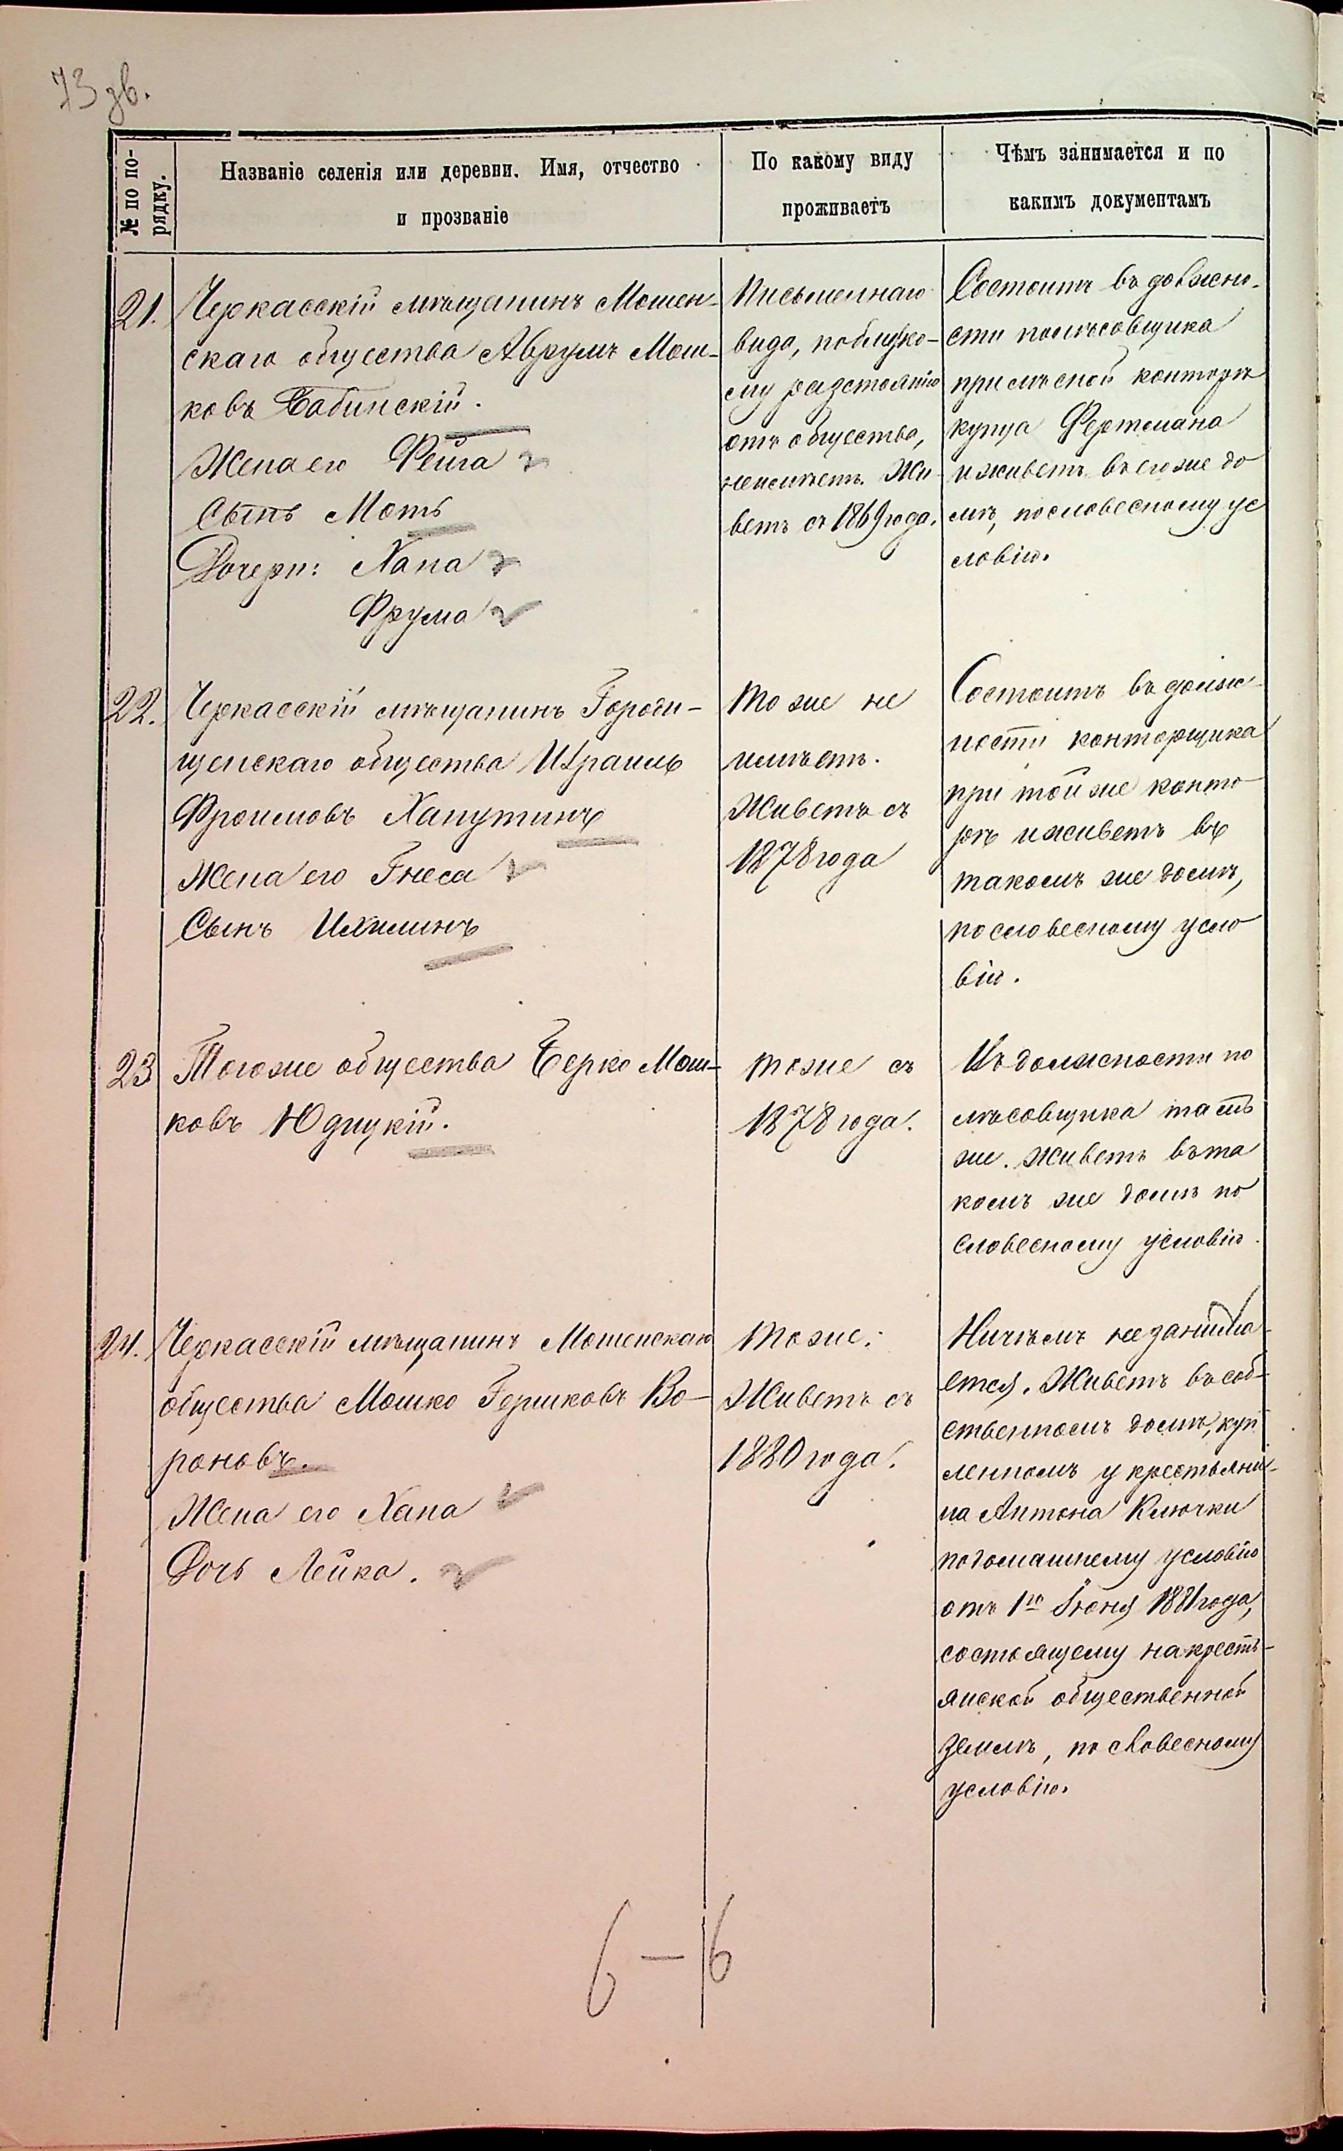 73 зв.
№ по по-
рядку.
Названіе селенія или деревни. Имя, отчество
и прозваніе
По какому виду
проживаетъ
Чѣмъ занимается и по
какимъ документамъ
21.
Черкасскій мѣщанинъ Мошен-
скаго общества Аврумъ Мош-
ковъ Бабинскій.
Жена его Фейга
Сынъ Мотъ
Дочери: Хана
Фрума
Письменнаго
вида, по близко-
му разстоянію
отъ общества,
неимѣетъ. Жи-
ветъ съ 1869 года.
Состоитъ въ должно-
сти помѣсовщика
при лѣсной конторѣ
купца Фертмана
и живетъ въ его же до
мѣ, по словесному ус
ловію.
22.
Черкасскій мѣщанинъ Городи-
щенскаго общества Израиль
Фроимовъ Хапутинъ
Жена его Гнеса
Сынъ Ихилинъ
То же не
имѣетъ.
Живетъ съ
1878 года
Состоитъ въ долж-
ности конторщика
при той же конто
рѣ и живетъ въ
такомъ же домѣ,
по словесному усло
вію.
23
Того же общества Берко Мош-
ковъ Юдицкій.
тоже съ
1878 года.
Въ должности по
мѣсовщика тамъ
же. Живетъ въ та
комъ же домѣ по
словесному условію.
24.
Черкасскій мѣщанинъ Мошенскаго
общества Мошко Гершковъ Во-
роновъ.
Жена его Хана
Дочь Лейка.
Тоже:
Живетъ съ
1880 года.
Ничѣмъ не занима-
ется. Живетъ въ соб-
ственномъ домѣ, куп
ленномъ у крестьяни-
на Антона Ключки
по домашнему условію
отъ 1го Іюня 1881 года,
состоящему на кресть-
янской общественной
землѣ, по словесному
условію.
6 – 16